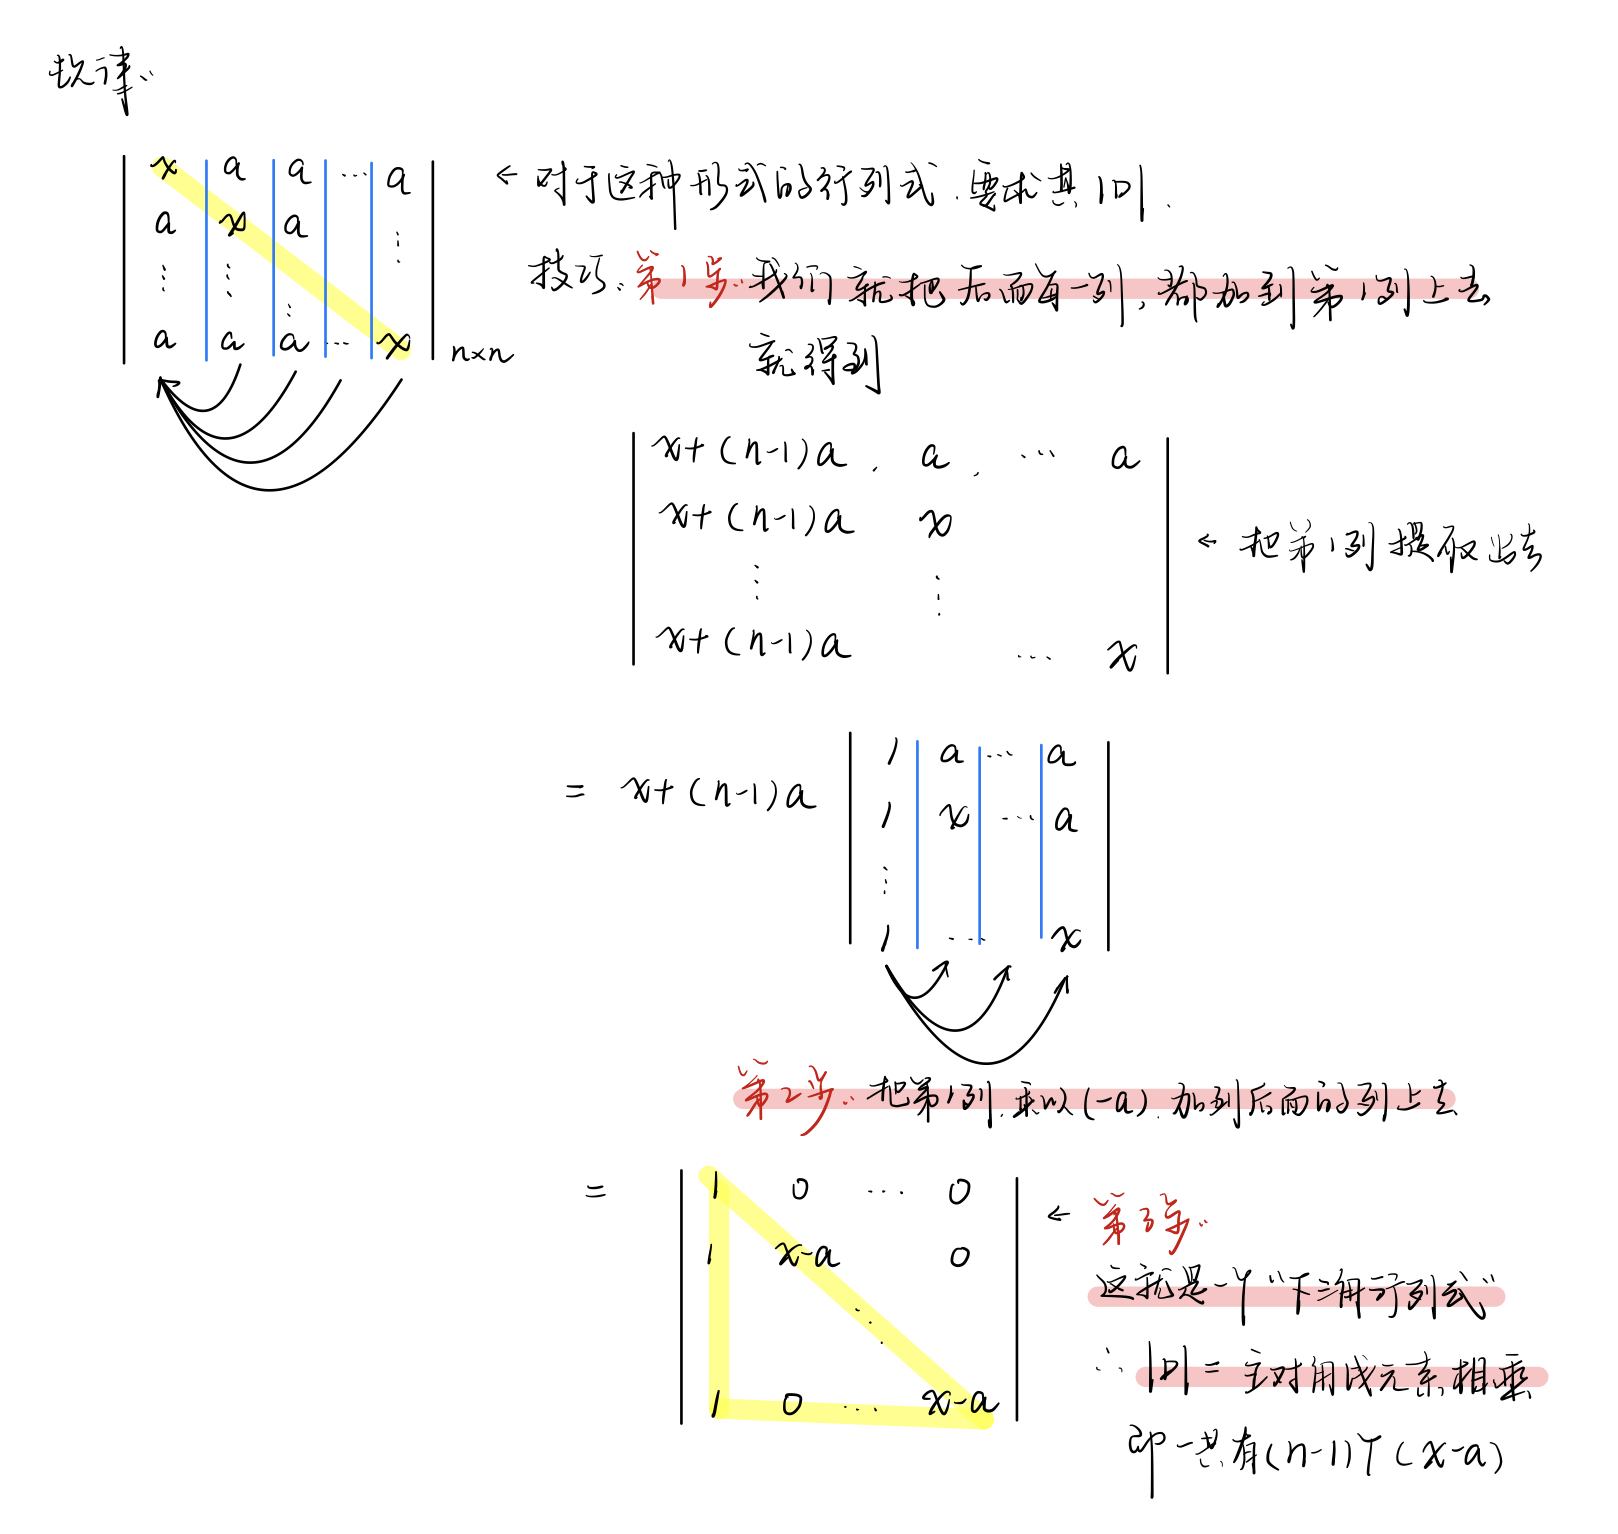 规律:
x a a ... a
a x a ⋮
⋮ ⋮ ⋮
a a a ... x n×n
← 对于这种形式的行列式.要求其|D|.
技巧:第1步:我们就把后面每一列,都加到第1列上去
就得到
x+(n-1)a , a , ... a
x+(n-1)a x
⋮ ⋮
x+(n-1)a ... x
← 把第1列提取出去
= x+(n-1)a
1 a ... a
1 x ... a
⋮
1 ... x
第2步:把第1列.乘以(-a).加到后面的列上去
=
1 0 ... 0
1 x-a 0
⋱
1 0 ... x-a
← 第3步:
这就是一个“下三角行列式”
∴ |D| = 主对角线元素相乘
即一共有(n-1)个(x-a)